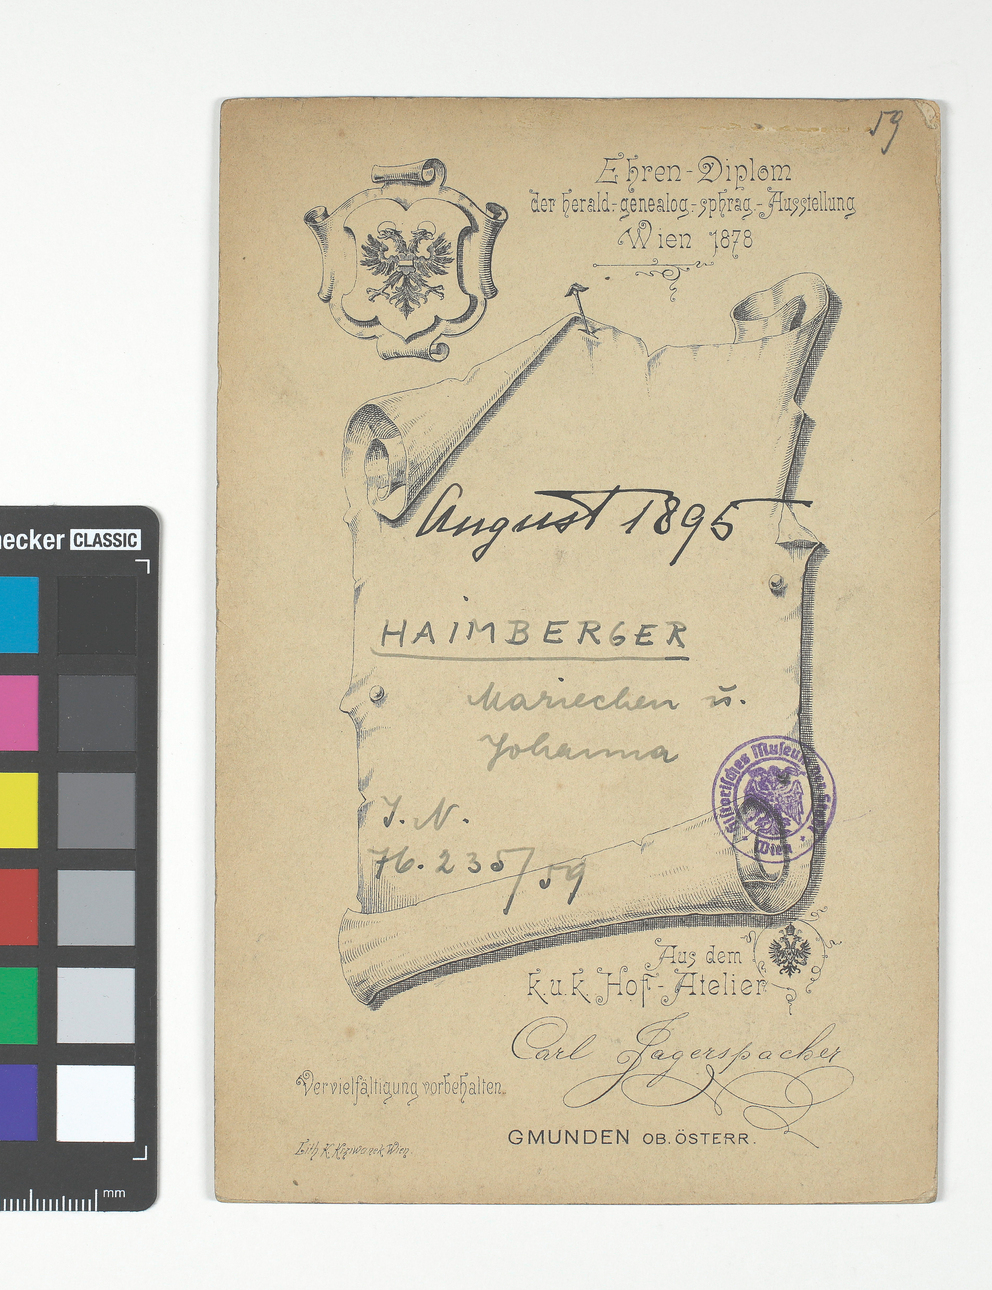 59
Ehren-Diplom
der herald.-genealog.-sphrag.-Ausstellung
Wien 1878
August 1895
HAIMBERGER
Mariechen u.
Johanna
J. N.
76.235/59
Historisches Museum der Stadt
Wien
Aus dem
k.u.k. Hof-Atelier
Carl Jagerspacher
Vervielfältigung vorbehalten.
GMUNDEN OB. ÖSTERR.
Lith. K. Krziwanek Wien.
checker CLASSIC
mm